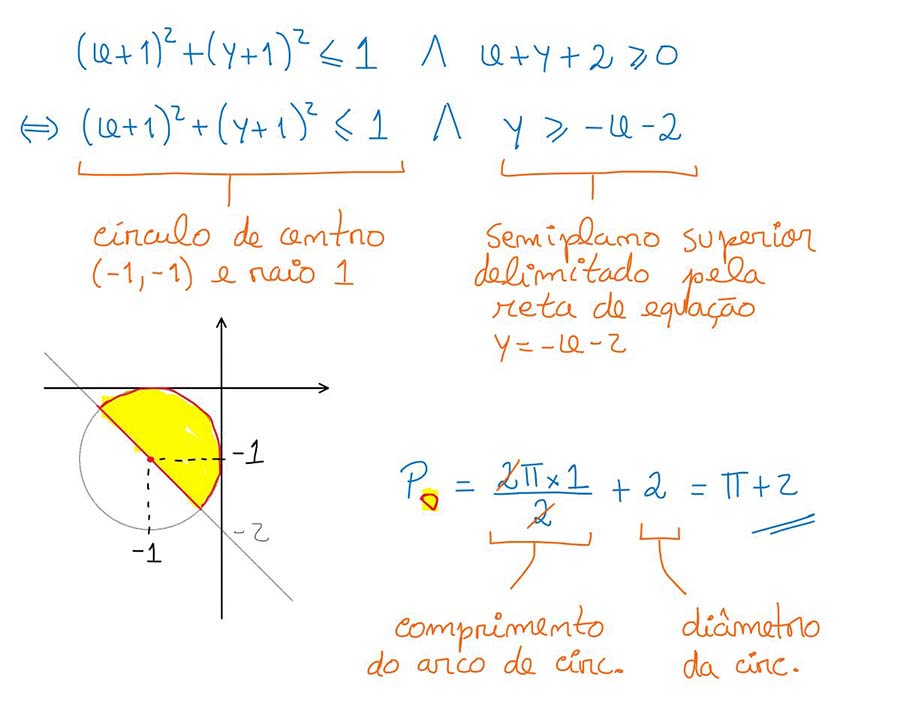 (x+1)²+(y+1)² ⩽ 1 ∧ x+y+2 ⩾ 0
⇔ (x+1)²+(y+1)² ⩽ 1 ∧ y ⩾ -x-2
círculo de centro
(-1,-1) e raio 1
semiplano superior
delimitado pela
reta de equação
y=-x-2
-1
-1
-2
P = 2π×1/2 + 2 = π+2
comprimento
do arco de circ.
diâmetro
da circ.